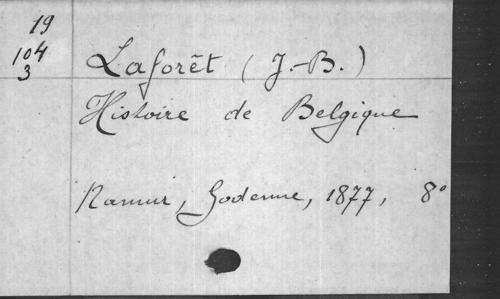 19
104
3
Laforêt (J.-B.)
Histoire de Belgique
Namur, Godenne, 1877, 8°